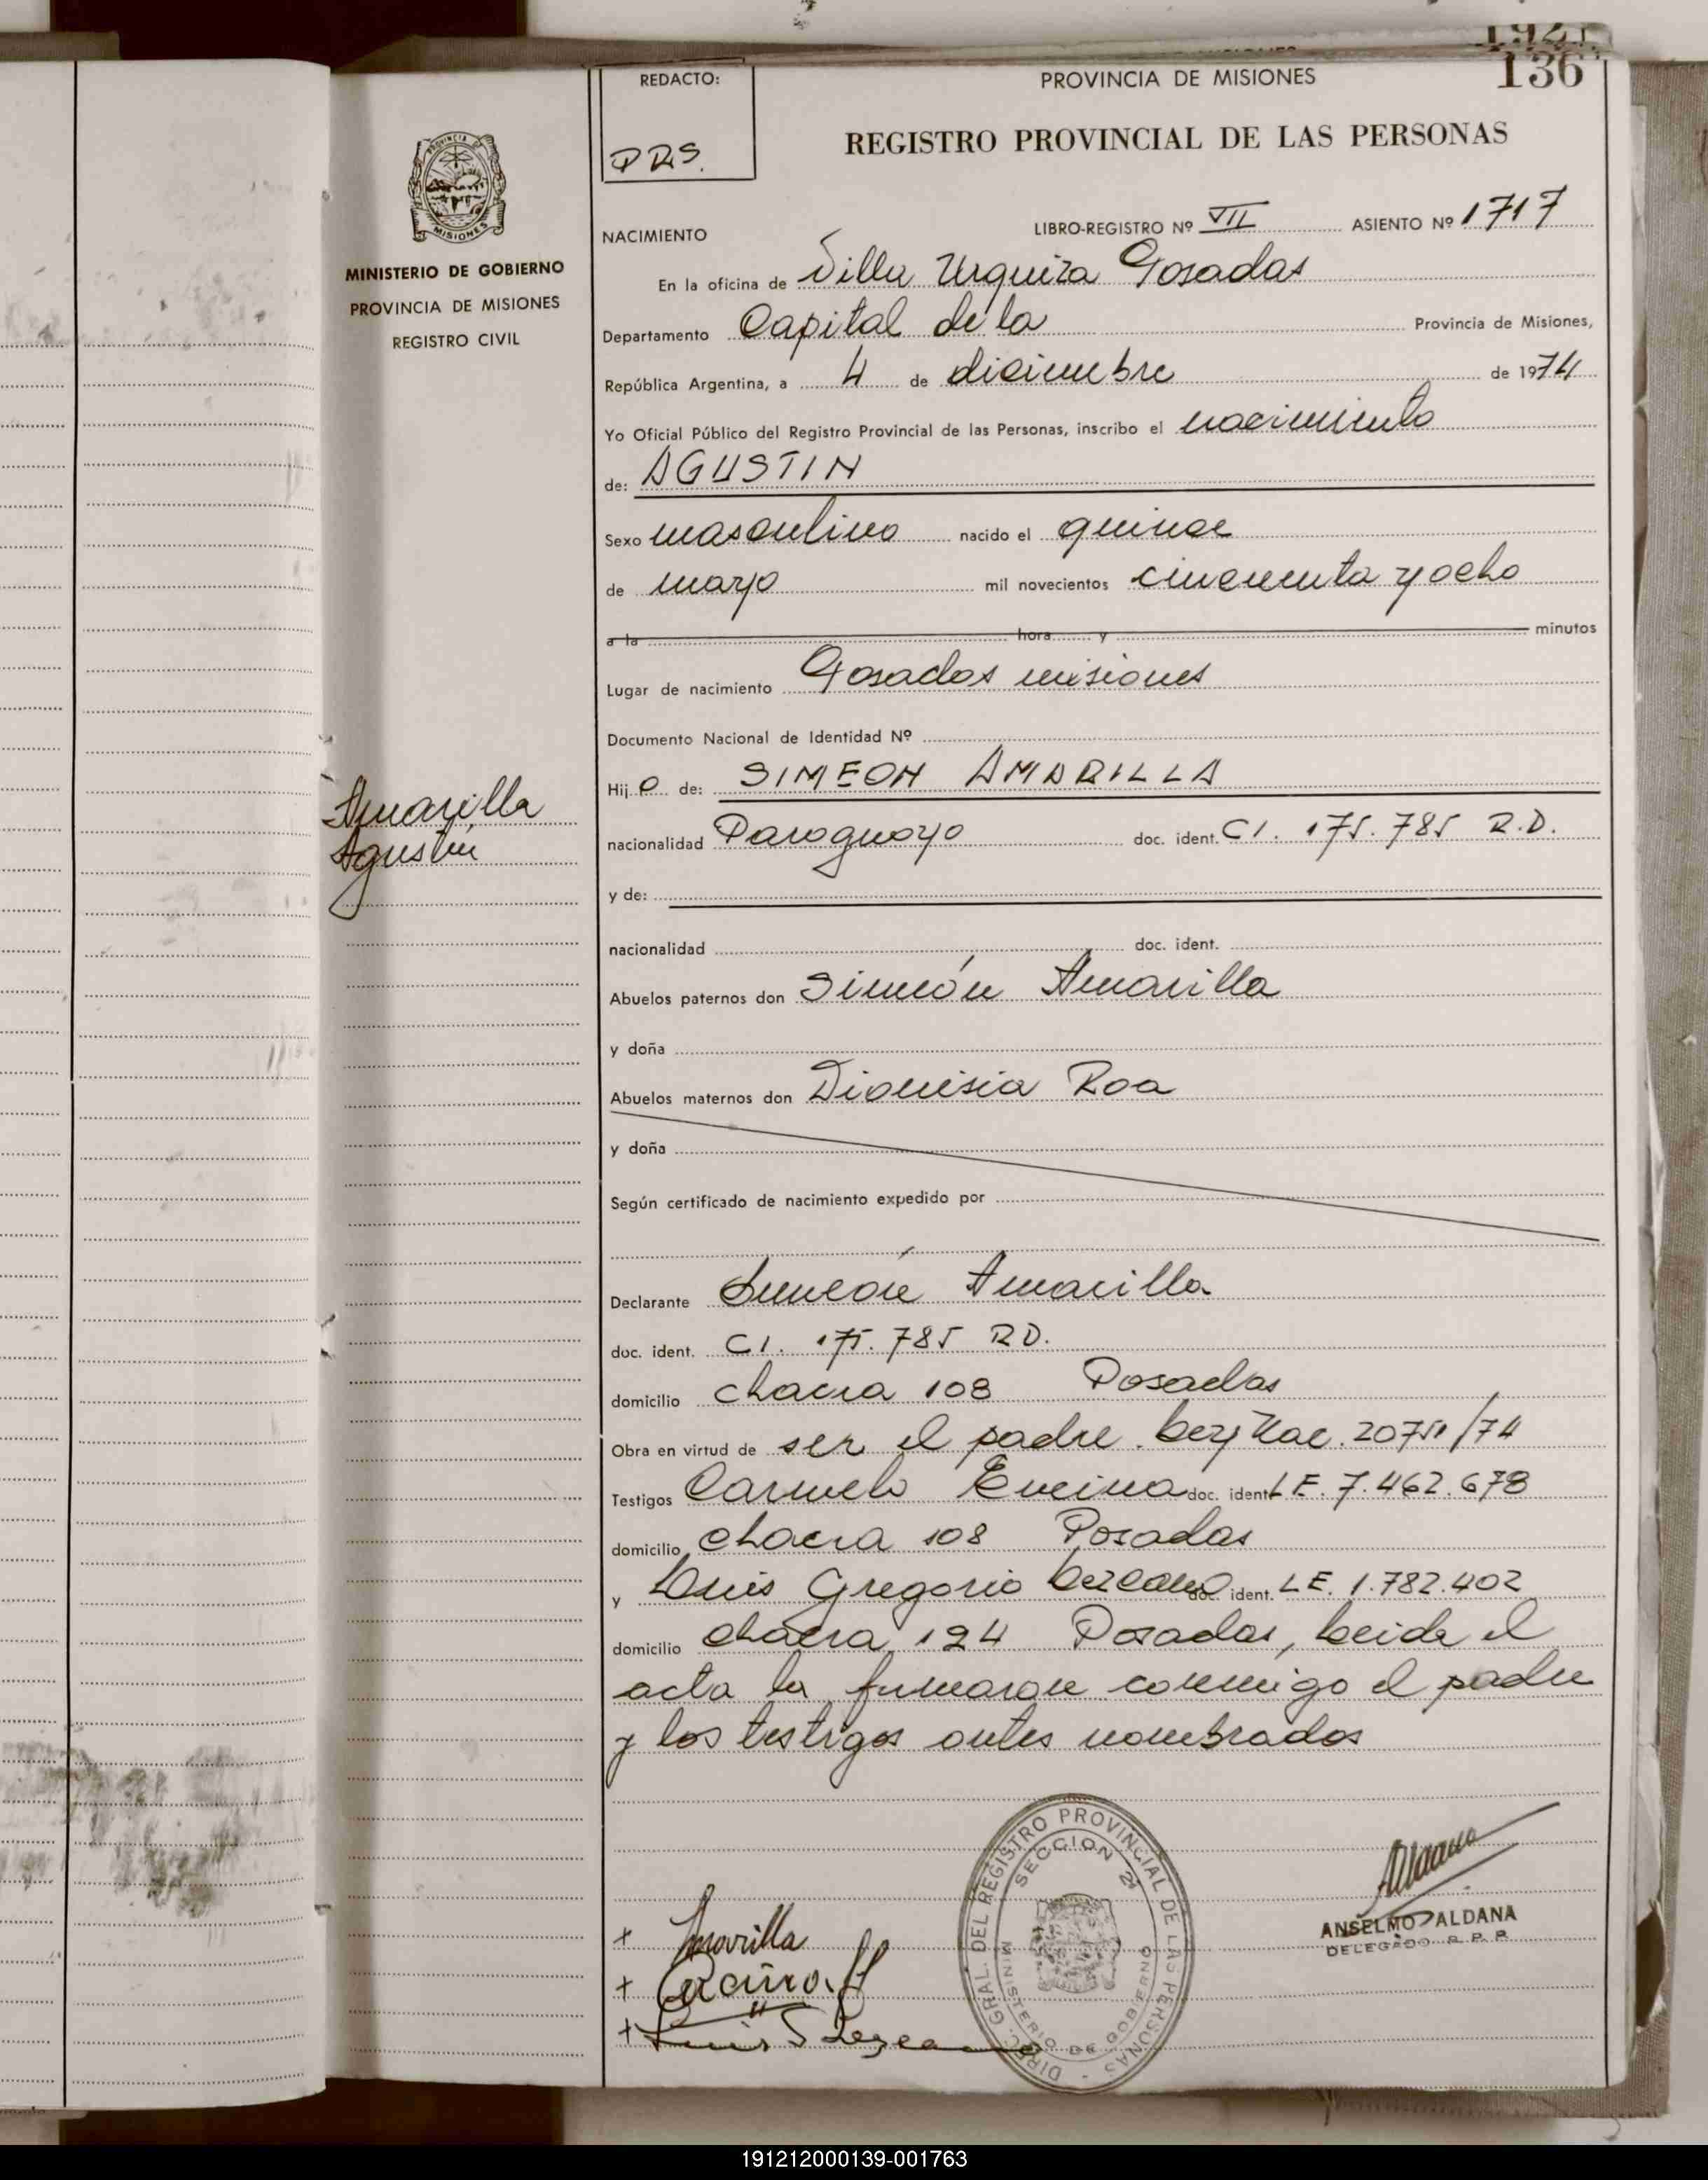 1921
136
REDACTO:
PRS.
PROVINCIA DE MISIONES
REGISTRO PROVINCIAL DE LAS PERSONAS
PROVINCIA DE
MISIONES
MINISTERIO DE GOBIERNO
PROVINCIA DE MISIONES
REGISTRO CIVIL
NACIMIENTO LIBRO-REGISTRO Nº VII ASIENTO Nº 1717
En la oficina de Villa Urquiza Posadas
Departamento Capital de la Provincia de Misiones,
República Argentina, a 4 de diciembre de 1974
Yo Oficial Público del Registro Provincial de las Personas, inscribo el nacimiento
de: AGUSTIN
Sexo masculino nacido el quince
de mayo mil novecientos cincuenta y ocho
a la hora y minutos
Lugar de nacimiento Posadas misiones
Documento Nacional de Identidad Nº
Hijo de: SIMEON AMARILLA
Amarilla
Agustin
nacionalidad Paraguayo doc. ident. CI. 175.785 R.D.
y de:
nacionalidad doc. ident.
Abuelos paternos don Simeón Amarilla
y doña
Abuelos maternos don Dionisia Roa
y doña
Según certificado de nacimiento expedido por
Declarante Simeón Amarilla
doc. ident. CI. 175.785 RD.
domicilio chacra 108 Posadas
Obra en virtud de ser el padre. Ley Nac. 20751/74
Testigos Carmelo Encina doc. ident. LE. 7.462.678
domicilio chacra 108 Posadas
y Luis Gregorio Lezcano doc. ident. LE. 1.782.402
domicilio chacra 124 Posadas, Leida el
acta la firmaron conmigo el padre
y los testigos antes nombrados
DIREC. GRAL. DEL REGISTRO PROVINCIAL DE LAS PERSONAS
SECCION 2ª
MINISTERIO DE GOBIERNO
Aldana
ANSELMO ALDANA
DELEGADO R. P. P.
+ Amarilla
+
+ Luis Lezcano
191212000139-001763